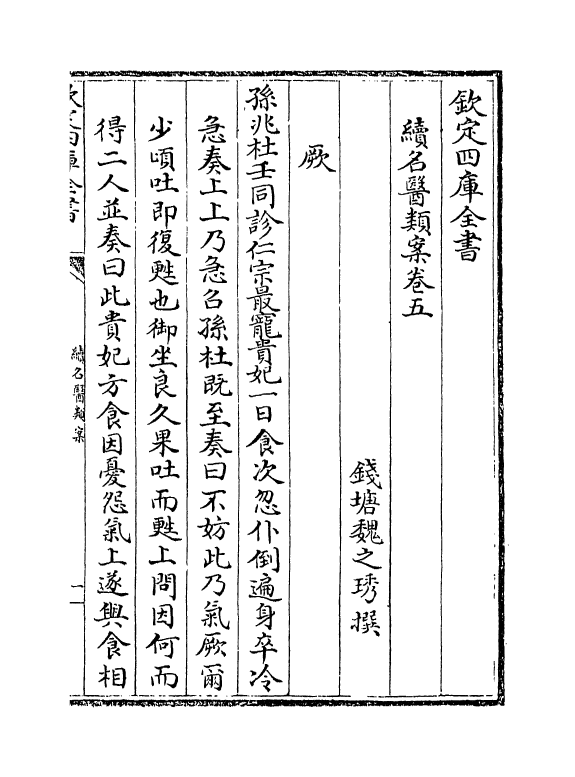 欽定四庫全書
續名醫類案卷五
錢塘魏之琇撰
厥
孫兆杜壬同診仁宗最寵貴妃一日食次忽仆倒遍身卒冷
急奏上上乃急召孫杜既至奏曰不妨此乃氣厥爾
少頃吐即復甦也御坐良久果吐而甦上問因何而
得二人並奏曰此貴妃方食因憂怨氣上遂與食相
欽定四庫全書
續名醫類案
一